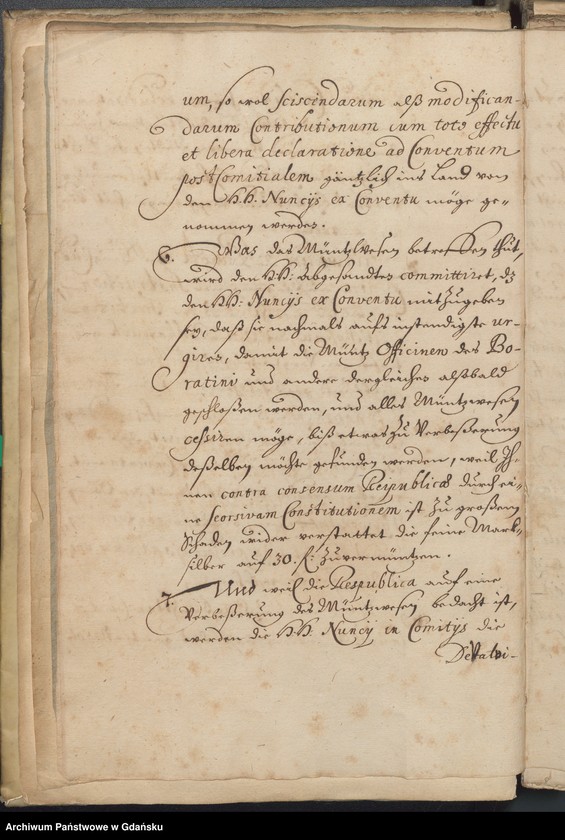 um, so wol sciscendarum alß modifican-
darum Contributionum cum toto effectu
et libera declaratione ad Conventum
postComitialem gäntzlich ins Land von
den HH: Nuncijs ex Conventu möge ge-
nommen werden.
6. Was das Müntzwesen betreffen thut,
wird den HH: Abgesandten committiret, dz
den HH: Nuncijs ex Conventu mitzugeben
sey, daß sie nachmals aufs instendigste ur-
giren, damit die Müntz Officinen des Bo-
ratini und andere dergleichen alßbald
geschloßen werden, und alles Müntzwesen
cessiren möge, biß etwas zu Verbeßerung
deßelben möchte gefunden werden, weil Ihe
nen contra consensum Reipublicæ durch ei-
ne seorsivam Constitutionem ist zu großem
Schaden wider verstattet die feine Mark
silber auf 30. fl: zuvermüntzen.
7. Und weil die Respublica auf eine
Verbeßerung des Müntzwesen bedacht ist,
werden die HH: Nuncij in Comitijs die
Devalvi-
Archiwum Państwowe w Gdańsku